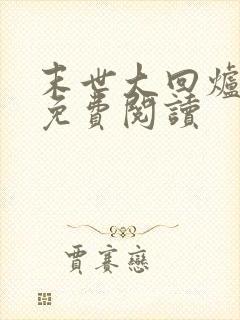 末世大回爐
免費閱讀
賈賽戀